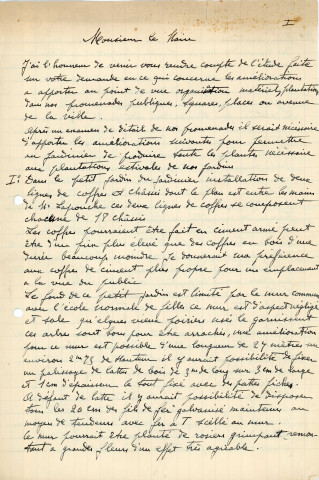 I
Monsieur le Maire
J'ai l'honneur de venir vous rendre compte de l'étude faite
sur votre demande en ce qui concerne les améliorations
a apporter au point de vue organisation materiel, plantation
dans nos promenades publiques, squares, places ou avenue
de la ville.
Après un examen de détail de nos promenades il serait nécessaire
d'apporter les améliorations suivantes pour permettre
au jardinier de produire toute les plantes nécessaire
aux plantations estivales de nos jardins
I: Dans le petit jardin du jardinier installation de deux
lignes de coffres et chassis dont le plan est entre les mains
de Mr ces deux lignes de coffres se composent
chacune de 18 chassis
Les coffres pourraient être fait en ciment armé peut
être d'un prix plus élevé que des coffres en bois d'une
durée beaucoup moindre. Je donnerai une préférence
aux coffres de ciment plus propre pour un emplacement
a la vue du public
Le fond de ce petit jardin est limité par le mur commun
avec l'école normale de fille ce mur est d'aspect négligé
et sale quelques vieux poiriers usés le garnissent
ces arbres sont bons pour être arrachés, une amélioration
pour ce mur est possible d'une longueur de 27 mètres au
environ 2m75 de hauteur il y aurait possibilité de fixer
un palissage de lattes de bois de 2m de long sur 3cm de large
et 1cm d'épaisseur le tout fixé avec des pattes fiches.
A défaut de latte il y aurait possibilité de disposer
tous les 20 cm des fils de fer galvanisé maintenu au
moyen de tendeurs avec fer à T scellé au mur.
Le mur pourrait être planté de rosiers grimpant remon-
tant a grandes fleurs d'un effet très agréable.